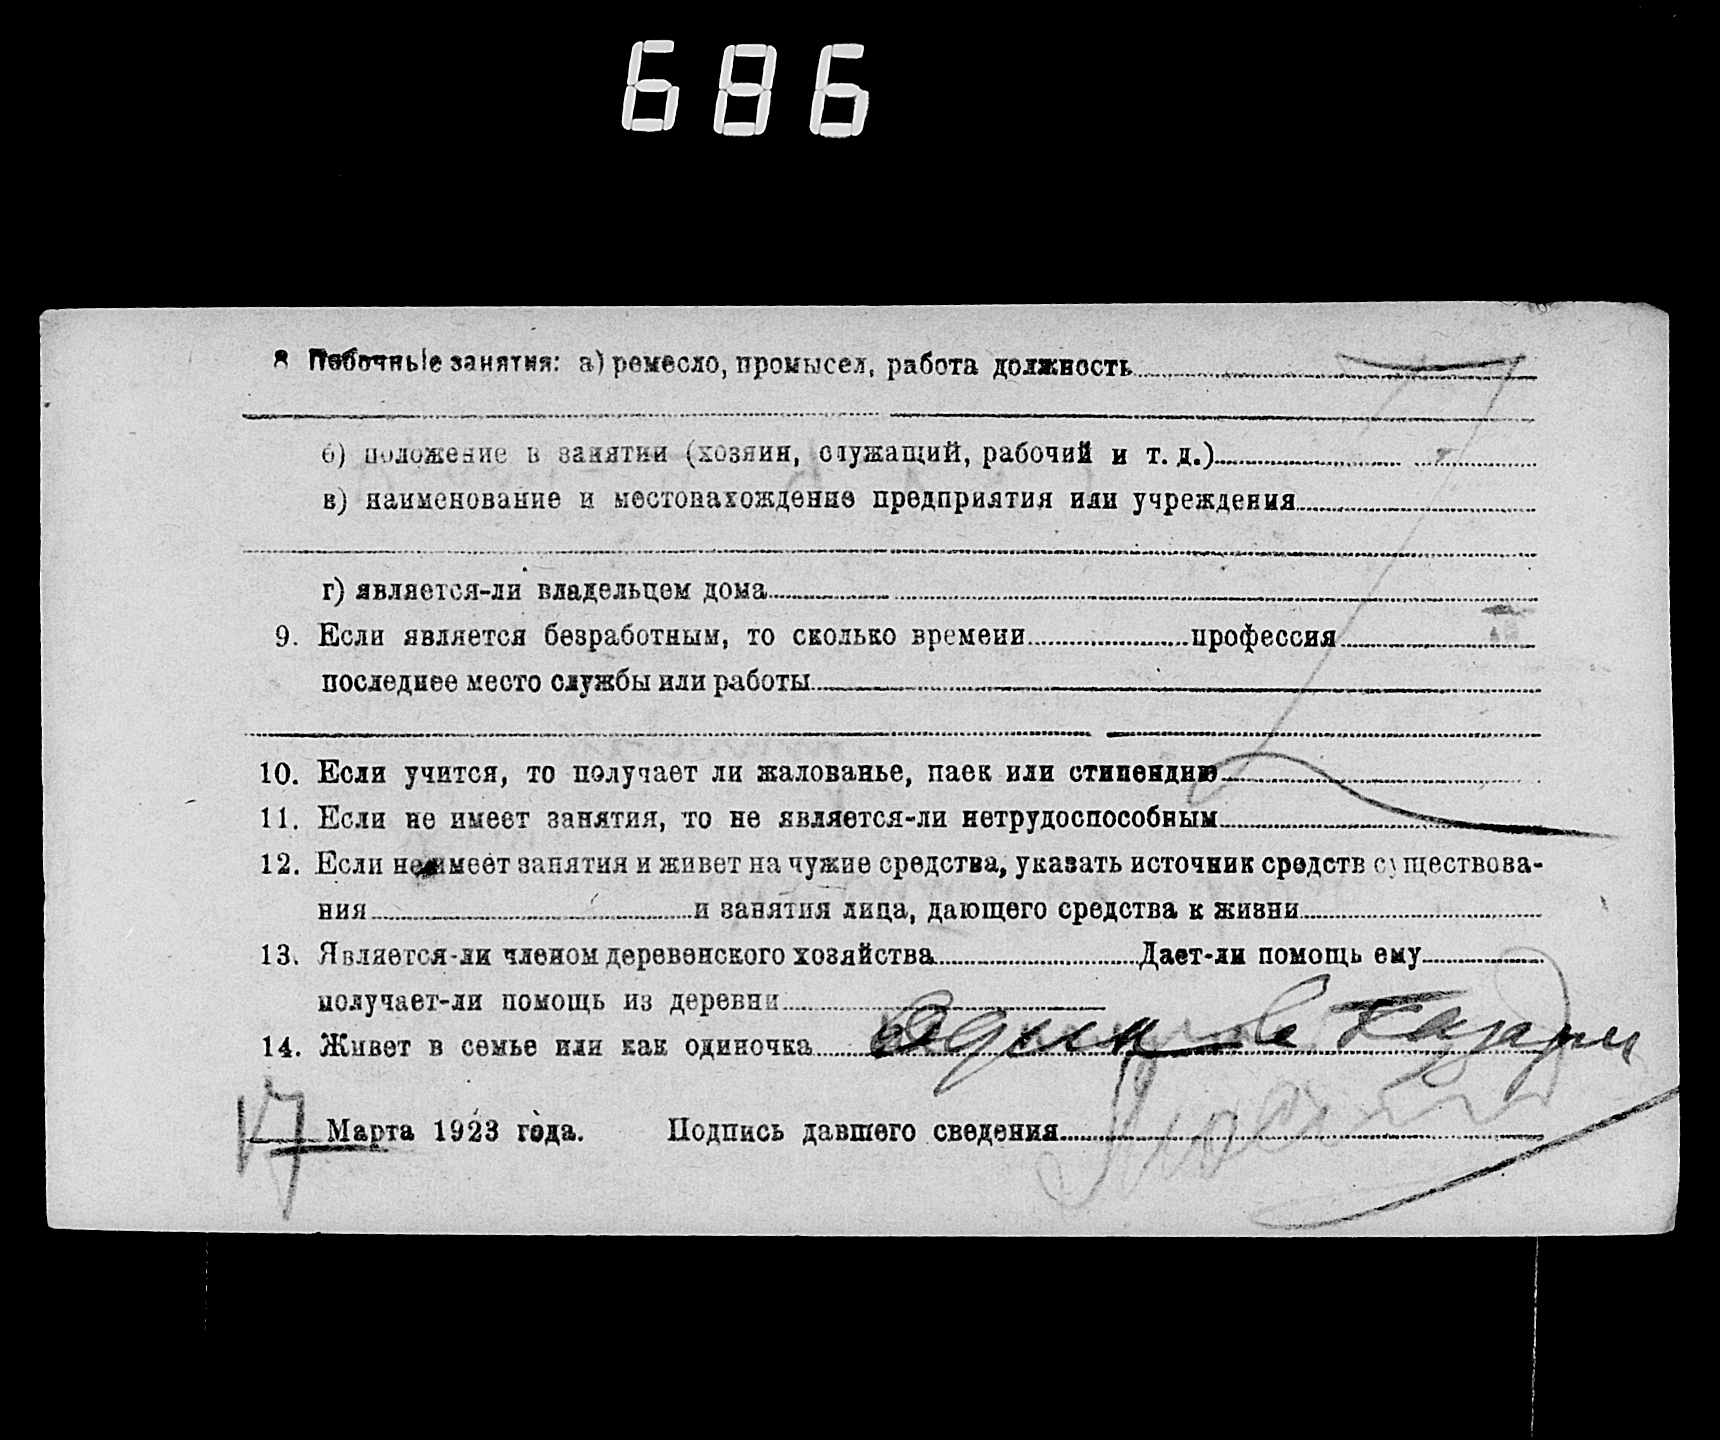 686
8 Побочные занятия: а) ремесло, промысел, работа должность
б) положение в занятии (хозяин, служащий, рабочий и т. д.)
в) наименование и местонахождение предприятия или учреждения
г) является-ли владельцем дома
9. Если является безработным, то сколько времени профессия
последнее место службы или работы
10. Если учится, то получает ли жалованье, паек или стипендию
11. Если не имеет занятия, то не является-ли нетрудоспособным
12. Если не имеет занятия и живет на чужие средства, указать источник средств существова-
ния и занятия лица, дающего средства к жизни
13. Является-ли членом деревенского хозяйства Дает-ли помощь ему
получает-ли помощь из деревни
14. Живет в семье или как одиночка
17 Марта 1923 года. Подпись давшего сведения